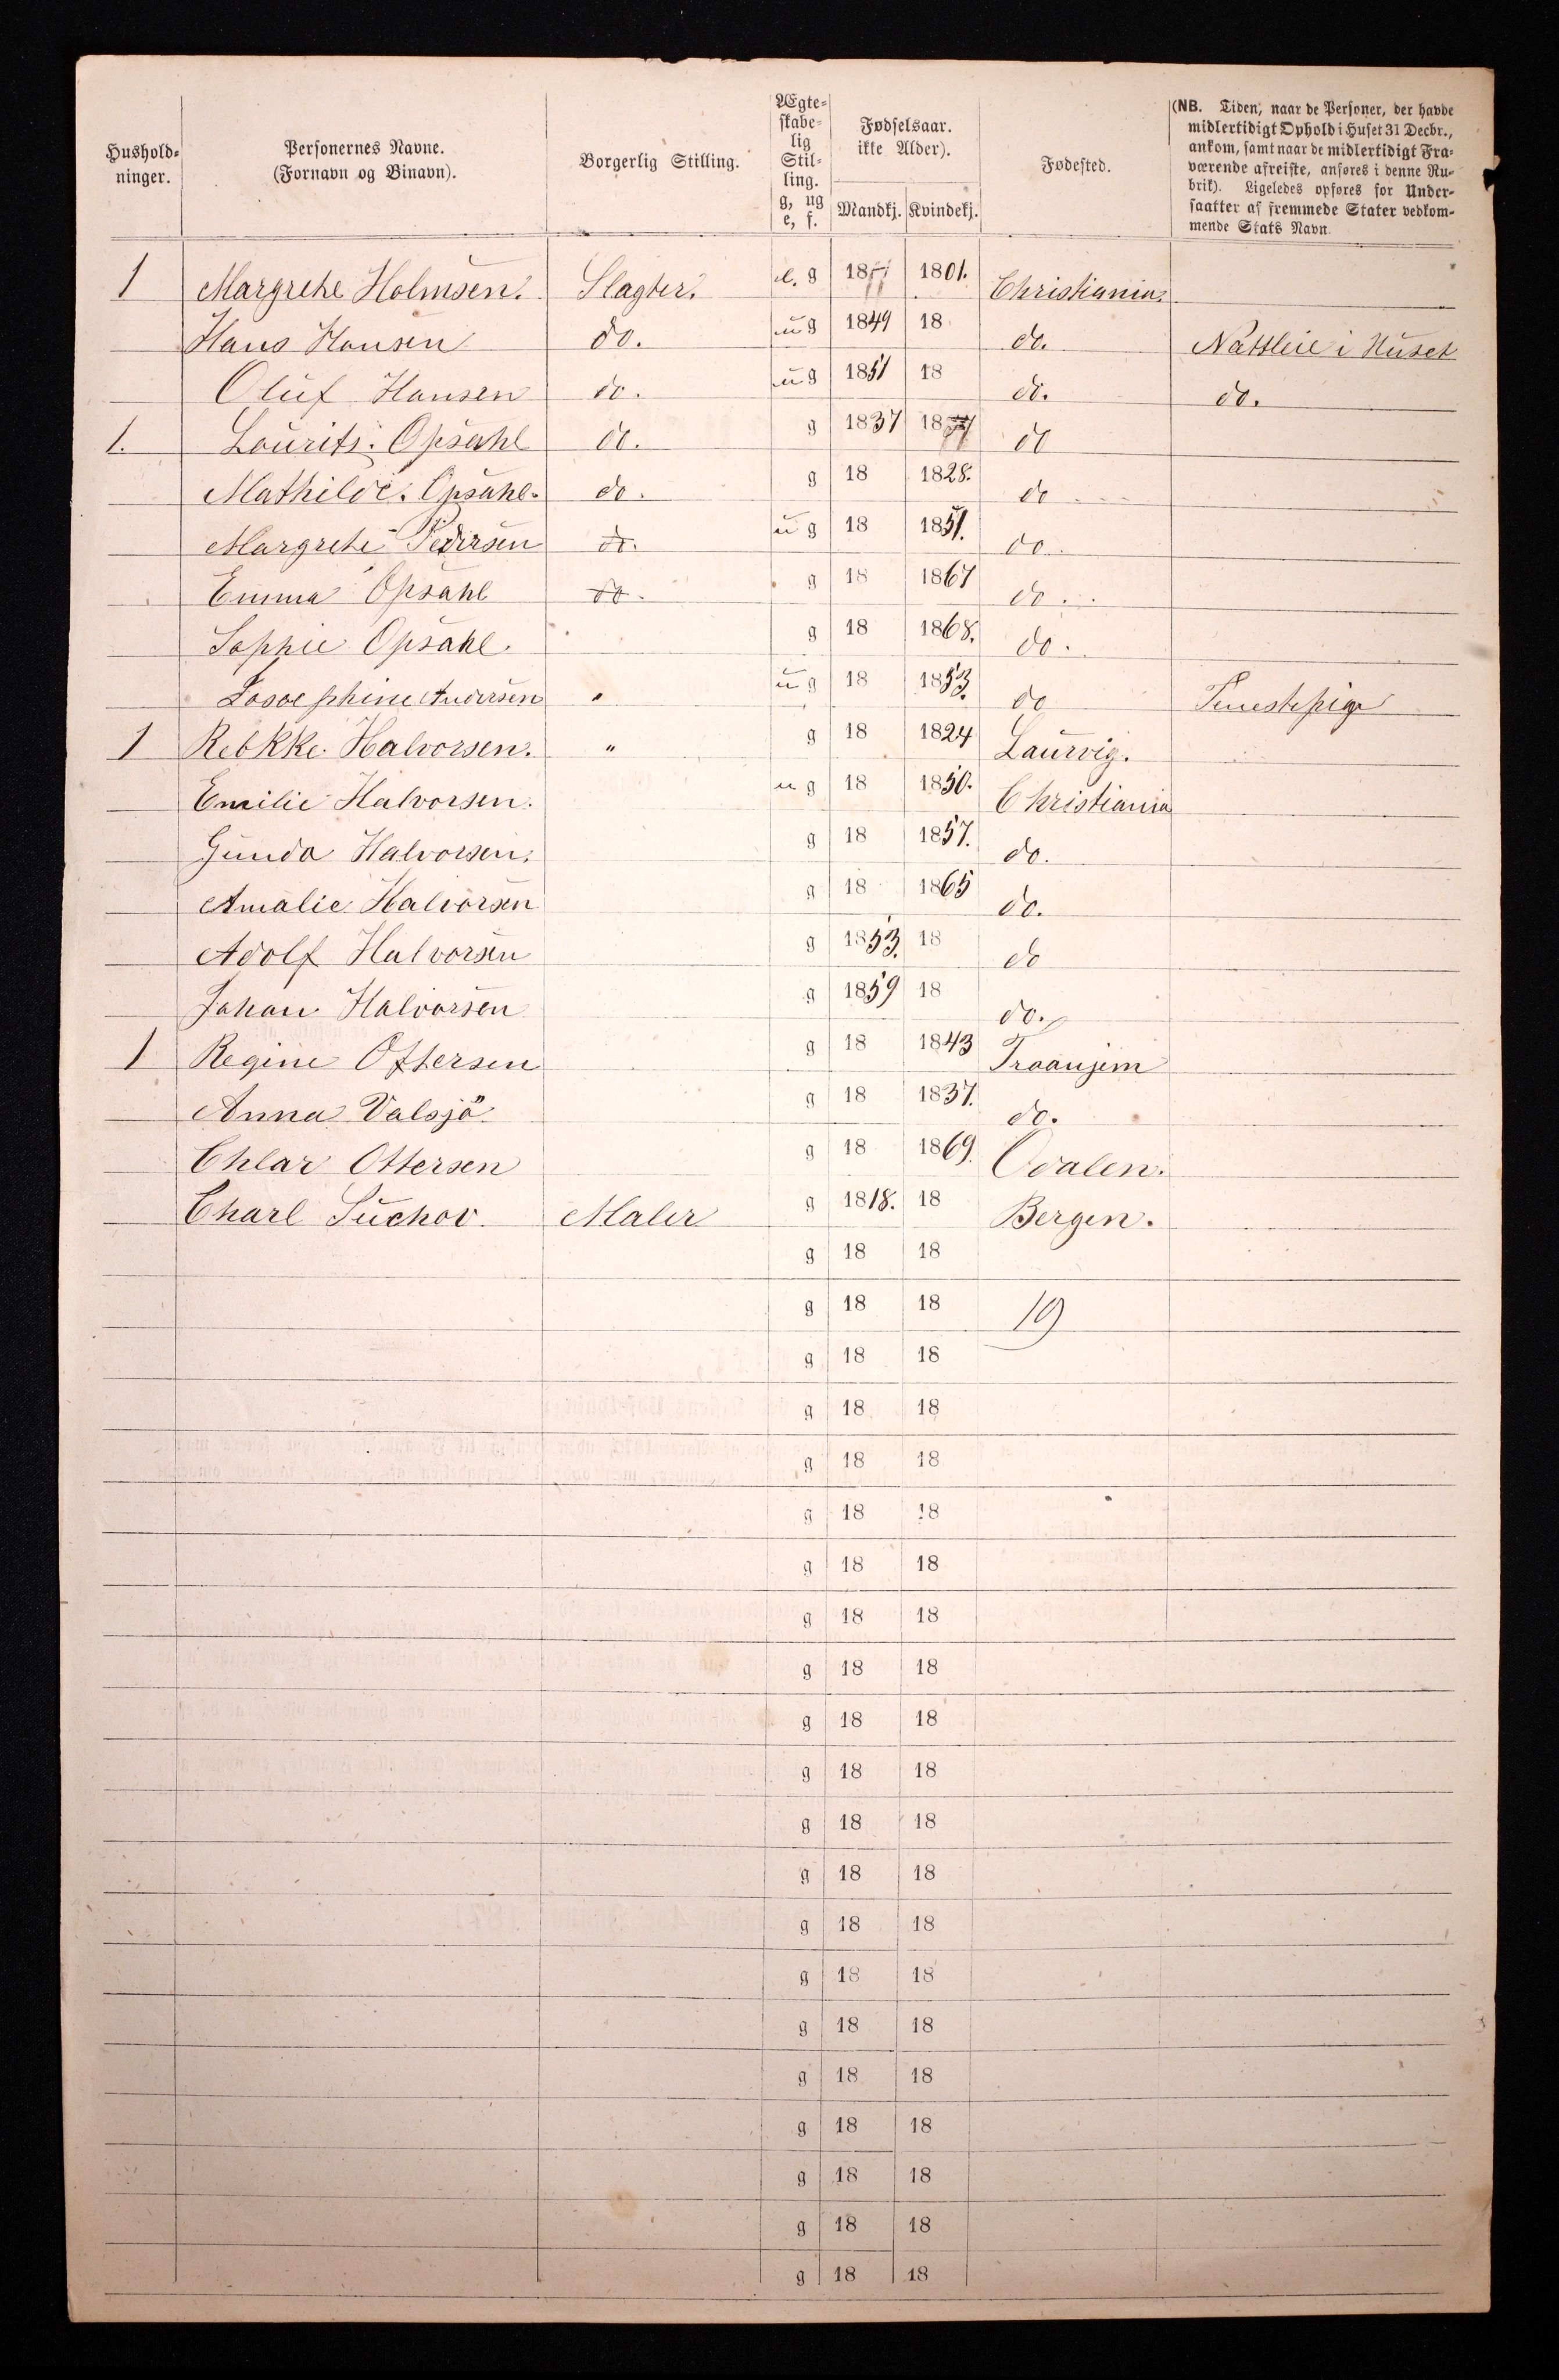 Hushold-
ninger.
Personernes Navne.
(Fornavn og Binavn).
Borgerlig Stilling.
Ægte-
skabe-
lig
Stil-
ling.
g, ug
e, f.
Fødselsaar.
ikke Alder).
Mandkj. Kvindekj.
Fødested.
(NB. Tiden, naar de Personer, der havde
midlertidigt Ophold i Huset 31 Decbr.,
ankom, samt naar de midlertidigt Fra-
værende afreiste, anføres i denne Ru-
brik). Ligeledes opføres for Under-
saatter af fremmede Stater vedkom-
mende Stats Navn.
1 Margrethe Holmsen. Slagter. e. g 18 1801. Christiania.
Hans Hansen do. u g 1849 18 do. Nattleie i Huset
Oluf Hansen do. u g 1851 18 do. do.
1. Lourits. Opsahl do. g 1837 18 do
Mathilde. Opsahl. do. g 18 1828. do
Margrethe Pedersen do. u g 18 1851. do.
Emma Opsahl do. g 18 1867 do.
Sophie Opsahl. g 18 1868. do.
Josoephine Andersen " u g 18 1853. do Tenestepige
1 Rebkke. Halvorsen. " g 18 1824 Laurvig.
Emilie Halvorsen. u g 18 1850. Christiania
Gunda Halvorsen. g 18 1857. do.
Amalie Halvorsen g 18 1865 do.
Adolf Halvorsen g 1853. 18 do
Johan Halvorsen g 1859 18 do.
1 Regine Ottersen g 18 1843 Troanjem
Anna Valsjö g 18 1837. do.
Chlar Ottersen g 18 1869. Odalen.
Charl Suchov. Maler g 1818. 18 Bergen.
g 18 18
g 18 18 19
g 18 18
g 18 18
g 18 18
g 18 18
g 18 18
g 18 18
g 18 18
g 18 18
g 18 18
g 18 18
g 18 18
g 18 18
g 18 18
g 18 18
g 18 18
g 18 18
g 18 18
g 18 18
g 18 18